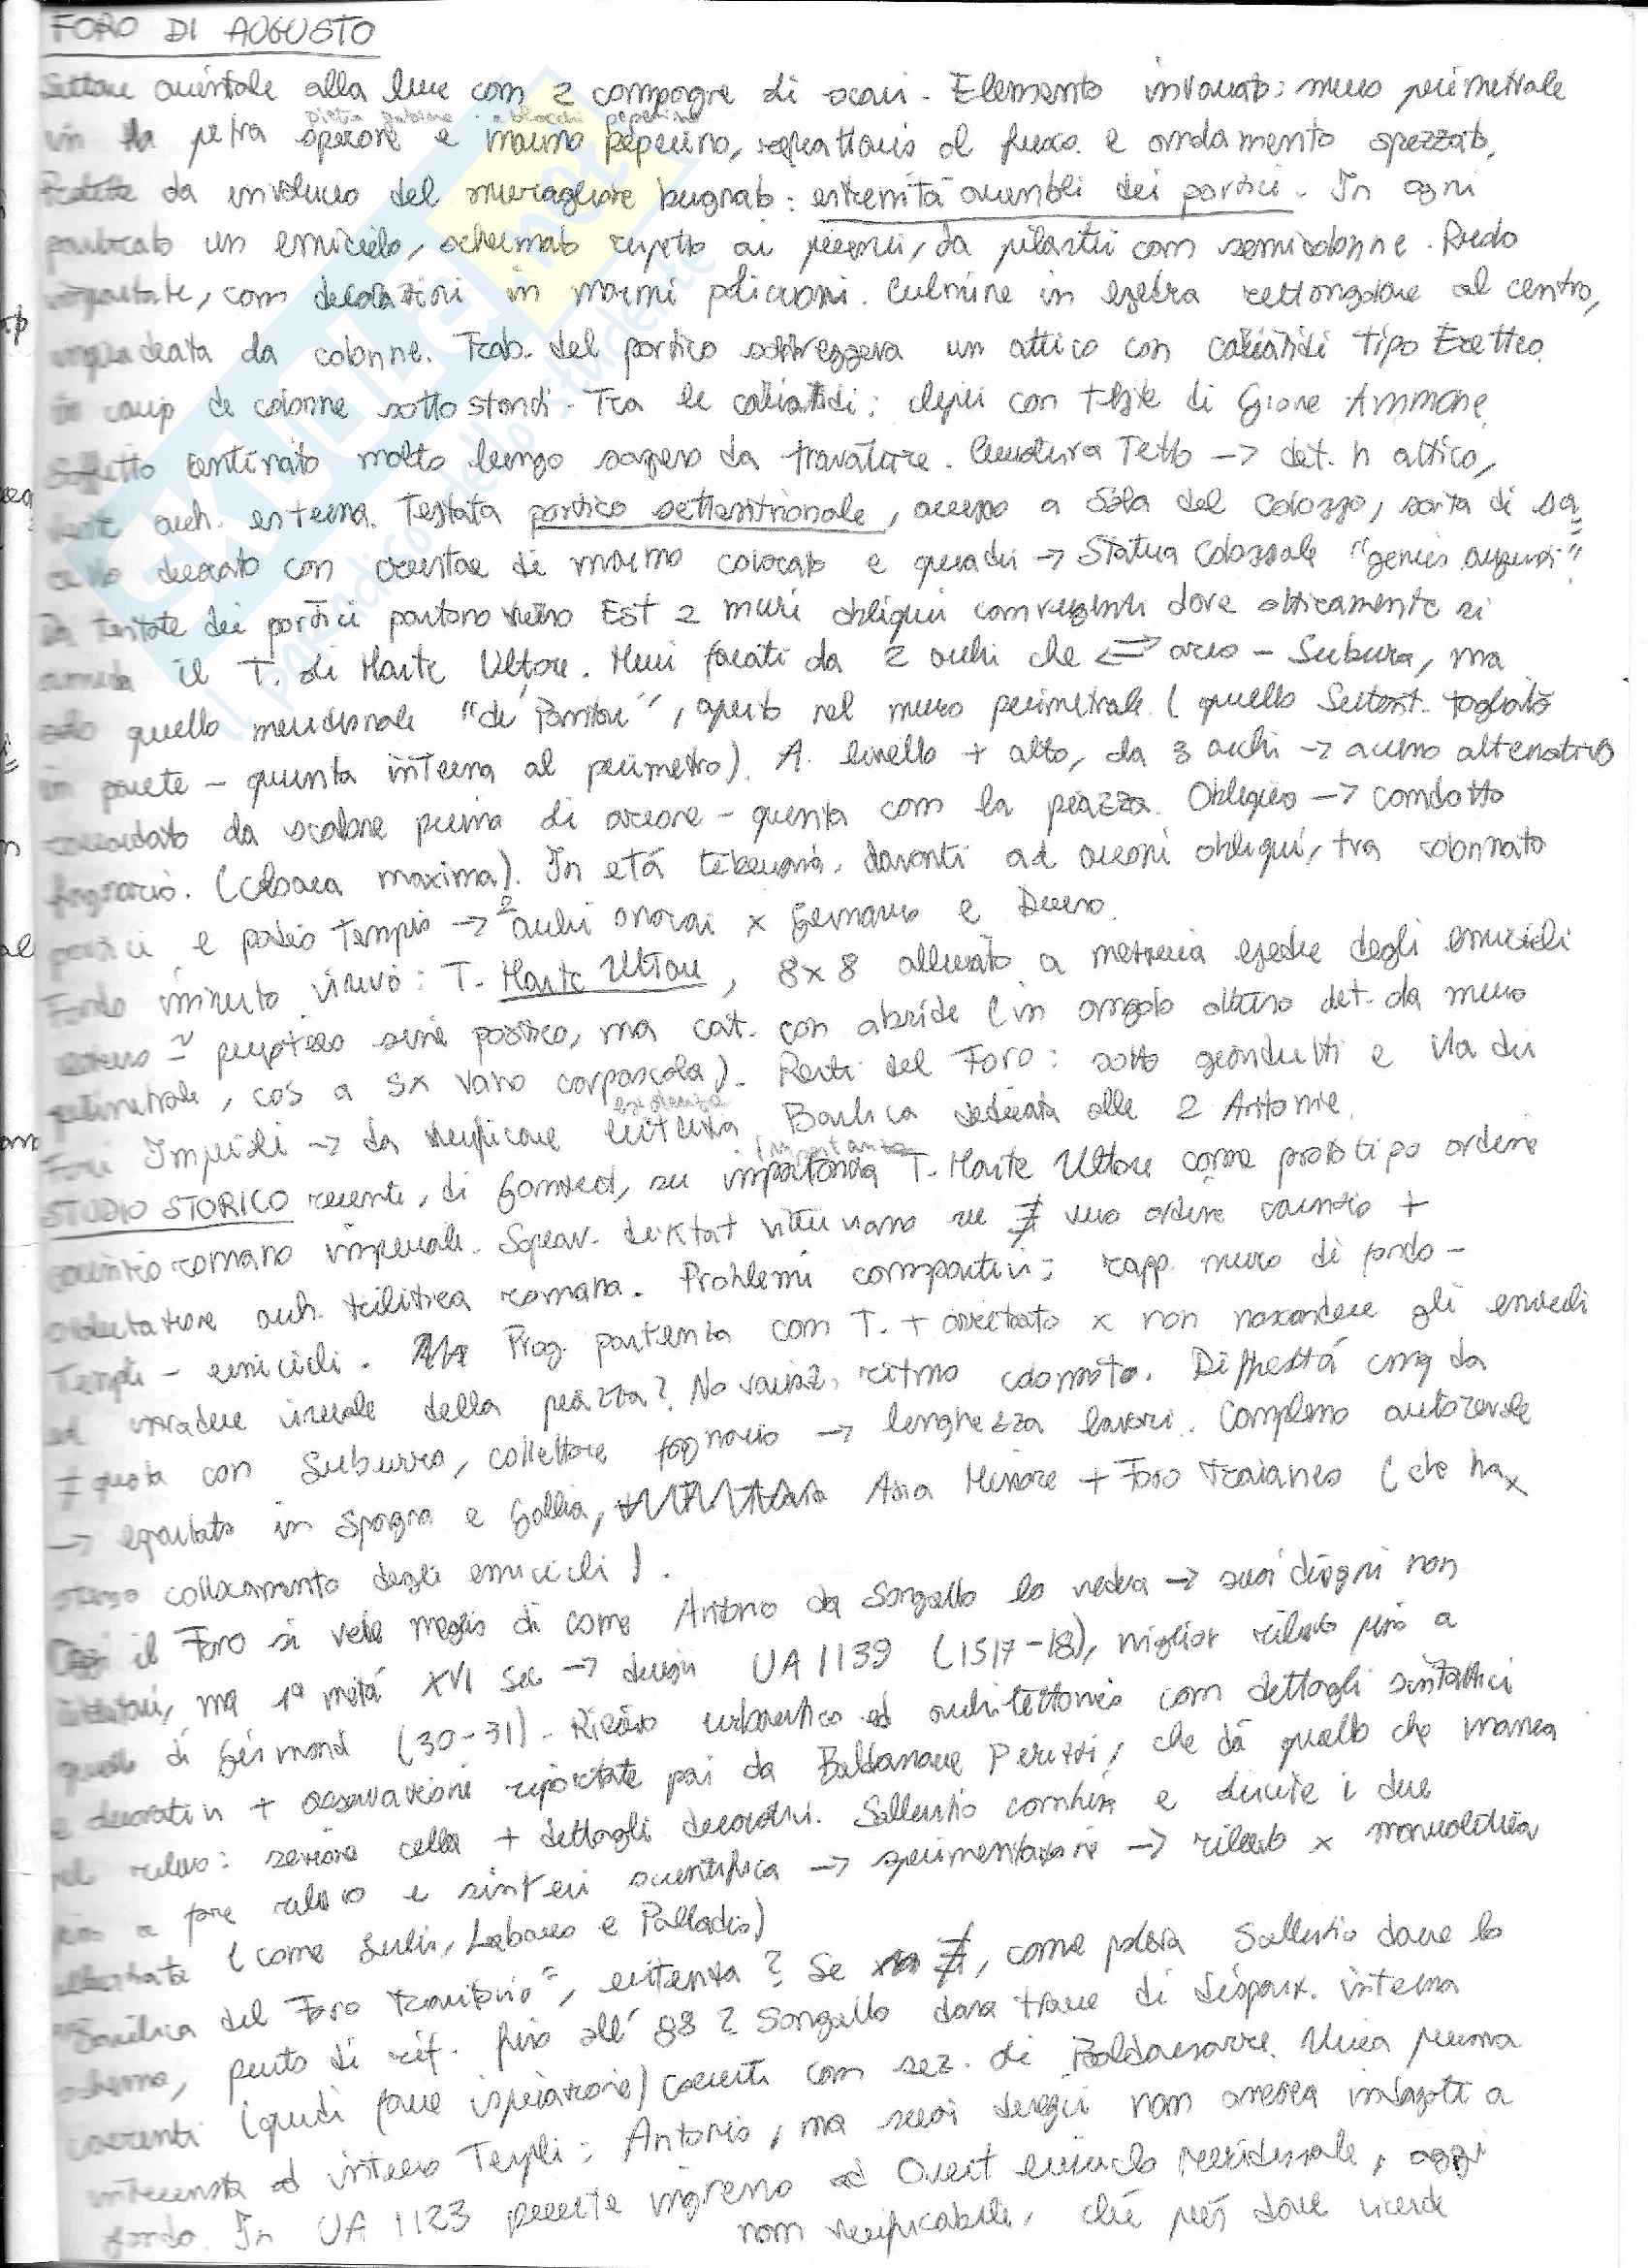 FORO DI AUGUSTO
Settore orientale alla luce con 2 campagne di scavi. Elemento invariato: muro perimetrale
in pietra sperone e marmo peperino, refrattario al fuoco e andamento spezzato.
pietra gabina a blocchi peperino
Protette da involucro del muraglione bugnato: estremità orientali dei portici. In ogni
porticato un emiciclo, schermato rispetto ai percorsi, da pilastri con semicolonne. Piedo
con decorazioni in marmi policromi. Culmine in esedra rettangolare al centro,
inquadrata da colonne. Trab. del portico sorreggeva un attico con cariatidi tipo Eretteo
in corrisp di colonne sottostanti. Tra le cariatidi: clipei con teste di Giove Ammone.
Soffitto centinato molto lungo sospeso da travature. Curvatura Tetto -> det. h attico,
arch. esterna. Testata portico settentrionale, accesso a Sala del Colosso, sorta di sa
decorato con crustae di marmo colorato e quadri -> Statua Colossale "genius augusti"
Da testate dei portici partono dietro Est 2 muri obliqui convergenti dove otticamente si
annida il T. di Marte Ultore. Muri forati da 2 archi che <=> arco - Subura, ma
solo quello meridionale "de' Pantani", aperto nel muro perimetrale (quello Settent. tagliato
in parete - quinta interna al perimetro). A livello + alto, da 3 archi -> accesso alternativo
raccordato da scalone prima di arcone - quinta con la piazza. Obliquo -> condotto
fognario. (cloaca maxima). In età tiberiana, davanti ad arconi obliqui, tra colonnato
portici e podio tempio -> 2 archi onorari x Germanico e Druso.
Fondo visivo: T. Marte Ultore, 8x8 allineato a mezzeria esedre degli emicicli
esterno ≃ periptero sine postico, ma cat. con abside (in angolo ottuso det. da muro
perimetrale, così a sx vano). Resti del Foro: sotto giardinetti e Via dei
Fori Imperiali -> da verificare esistenza Basilica dedicata alle 2 Antonie.
esistenza
importanza
STUDIO STORICO recente, di Ganzert, su importanza T. Marte Ultore come prototipo ordine
corinzio romano imperiale. Superav. diktat vitruviano su ∄ suo ordine corinzio +
arch. trilitica romana. Problemi compositivi: rapp. muro di fondo -
Templi - emicicli. Prog. partenza con T. + arretrato x non nascondere gli emicicli
ed invadere visuale della piazza? No variaz. ritmo colonnato. Difficoltà cong da
≠ quota con Suburra, collettore fognario -> lunghezza lavori. Complesso autorevole
-> esportato in Spagna e Gallia, Asia Minore + Foro Traianeo (che ha x
stesso collocamento degli emicicli).
Oggi il Foro si vede meglio di come Antonio da Sangallo lo vedeva -> suoi disegni non
ma 1ª metà XVI sec -> disegni UA 1139 (1517-18), miglior rilievo fino a
quello di Gismondi (30-31). Rilievo urbanistico ed architettonico con dettagli sintattici
e decorativi + osservazioni riportate poi da Baldassarre Peruzzi, che dà quello che manca
nel rilievo: sezione cella + dettagli decorativi. Sallustio combina e discute i due
fino a fare rilievo e sintesi scientifica -> sperimentazione -> rilievo x manualistica
illustrata (come Serlio, Labacco e Palladio)
"Basilica del Foro Transitorio", esistenza? Se ∄, come poteva Sallustio dare lo
schema, punto di rif. fino all' 88? Sangallo dava tracce di dispos. interna
coerenti (quindi fonte ispirazione) coerenti con sez. di Baldassarre. Unica persona
interessata ad interno Templi: Antonio, ma suoi disegni non ancora indagati a
fondo. In UA 1123 presente ingresso ad Ovest emiciclo meridionale, oggi
non verificabile, che però dove